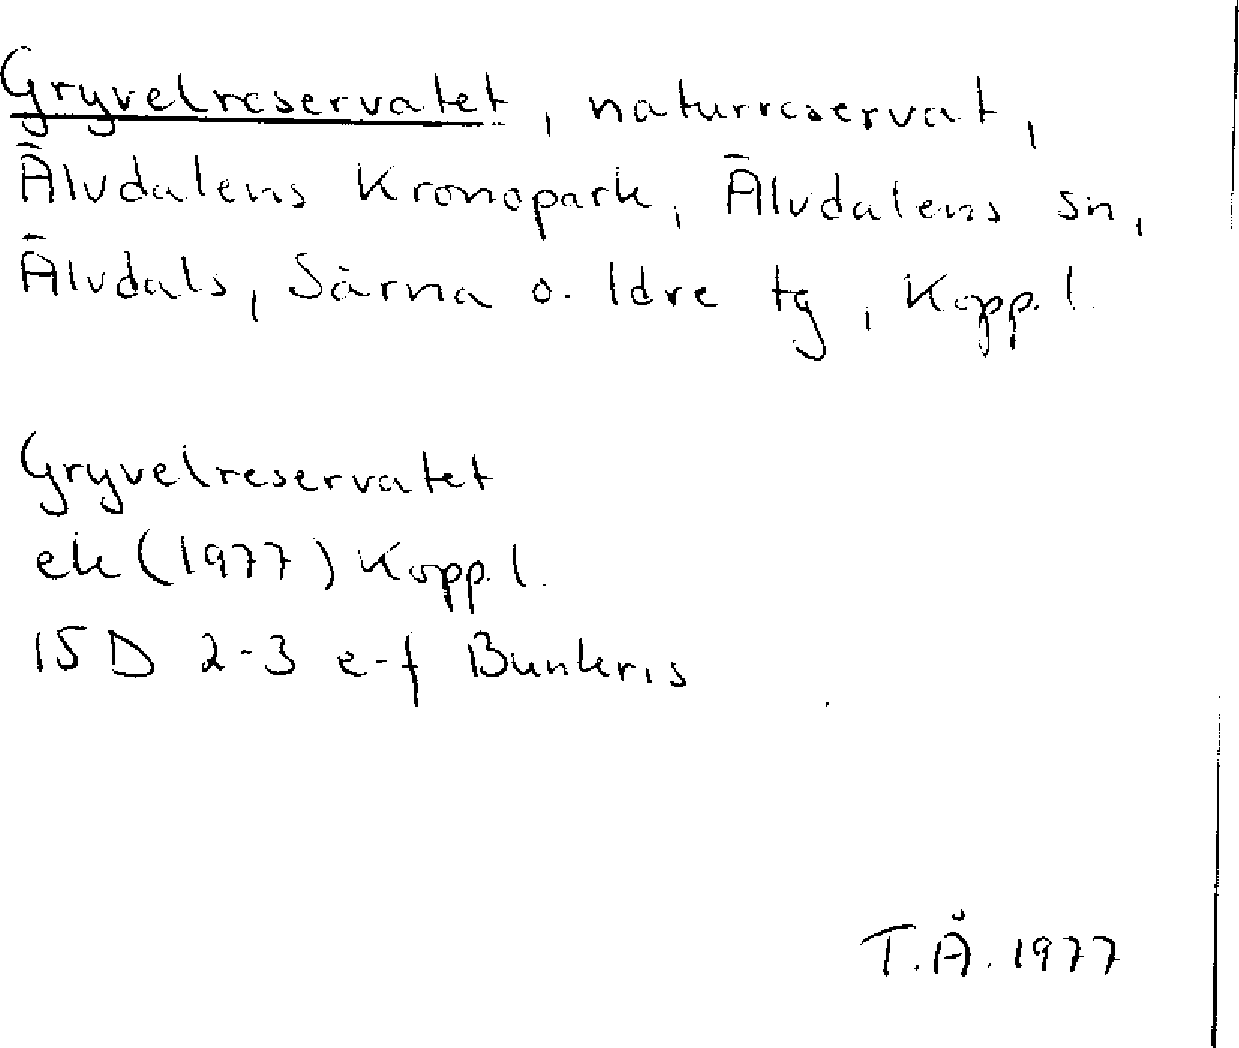 Gryvelreservatet, naturreservat,
Älvdalens Kronopark, Älvdalens sn,
Älvdals, Särna o. Idre tg, Kopp. l.
Gryvelreservatet
ek (1977) Kopp. l.
15 D 2-3 e-f Bunkris
T.Å. 1977